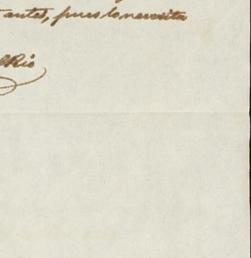 antes, pues lo necesita
Rio